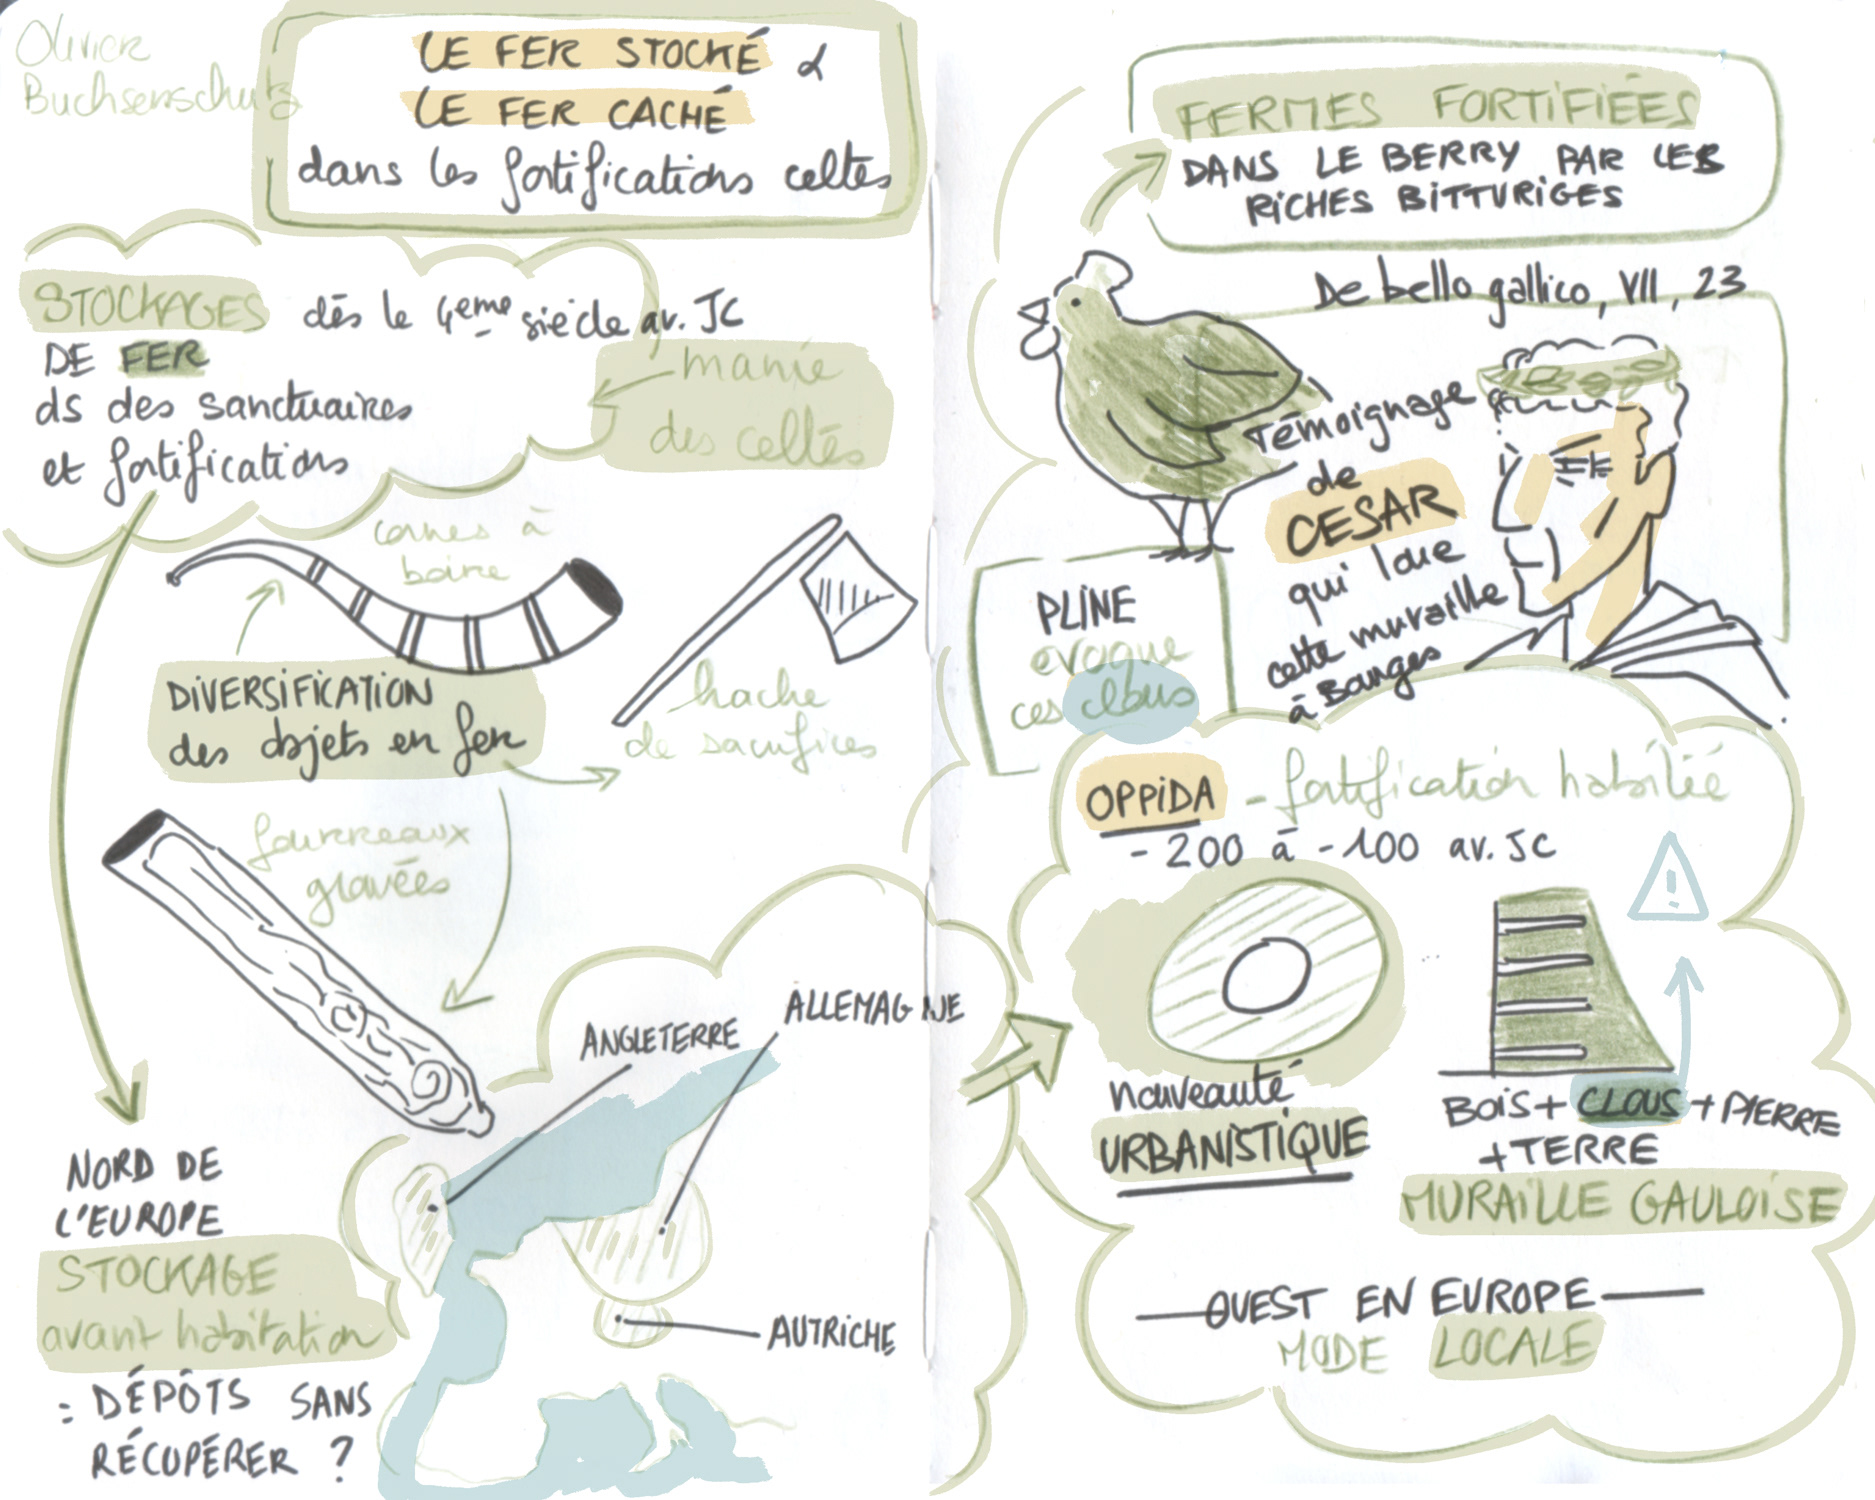 Olivier
Buchsenschutz
LE FER STOCKÉ &
LE FER CACHÉ
dans les fortifications celtes
STOCKAGES dès le 4eme siècle av. JC
DE FER
ds des sanctuaires
et fortifications
manie
des celtes
cornes à
boire
DIVERSIFICATION
des objets en fer
hache
de sacrifices
fourreaux
gravées
NORD DE
L'EUROPE
STOCKAGE
avant habitation
= DÉPÔTS SANS
RÉCUPÉRER ?
ANGLETERRE
ALLEMAGNE
AUTRICHE
FERMES FORTIFIÉES
DANS LE BERRY PAR LES
RICHES BITTURIGES
De bello gallico, VII, 23
Témoignage
de
CESAR
qui loue
cette muraille
à Bourges
PLINE
évoque
ces clous
OPPIDA - fortification habitée
- 200 à - 100 av. JC
nouveauté
URBANISTIQUE
!
BOIS + CLOUS + PIERRE
+ TERRE
MURAILLE GAULOISE
OUEST EN EUROPE
MODE LOCALE